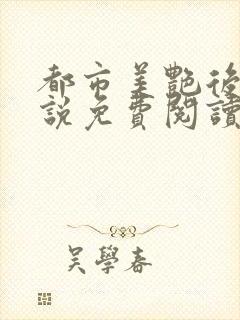 都市美艷後
說免費閱讀
吳學春